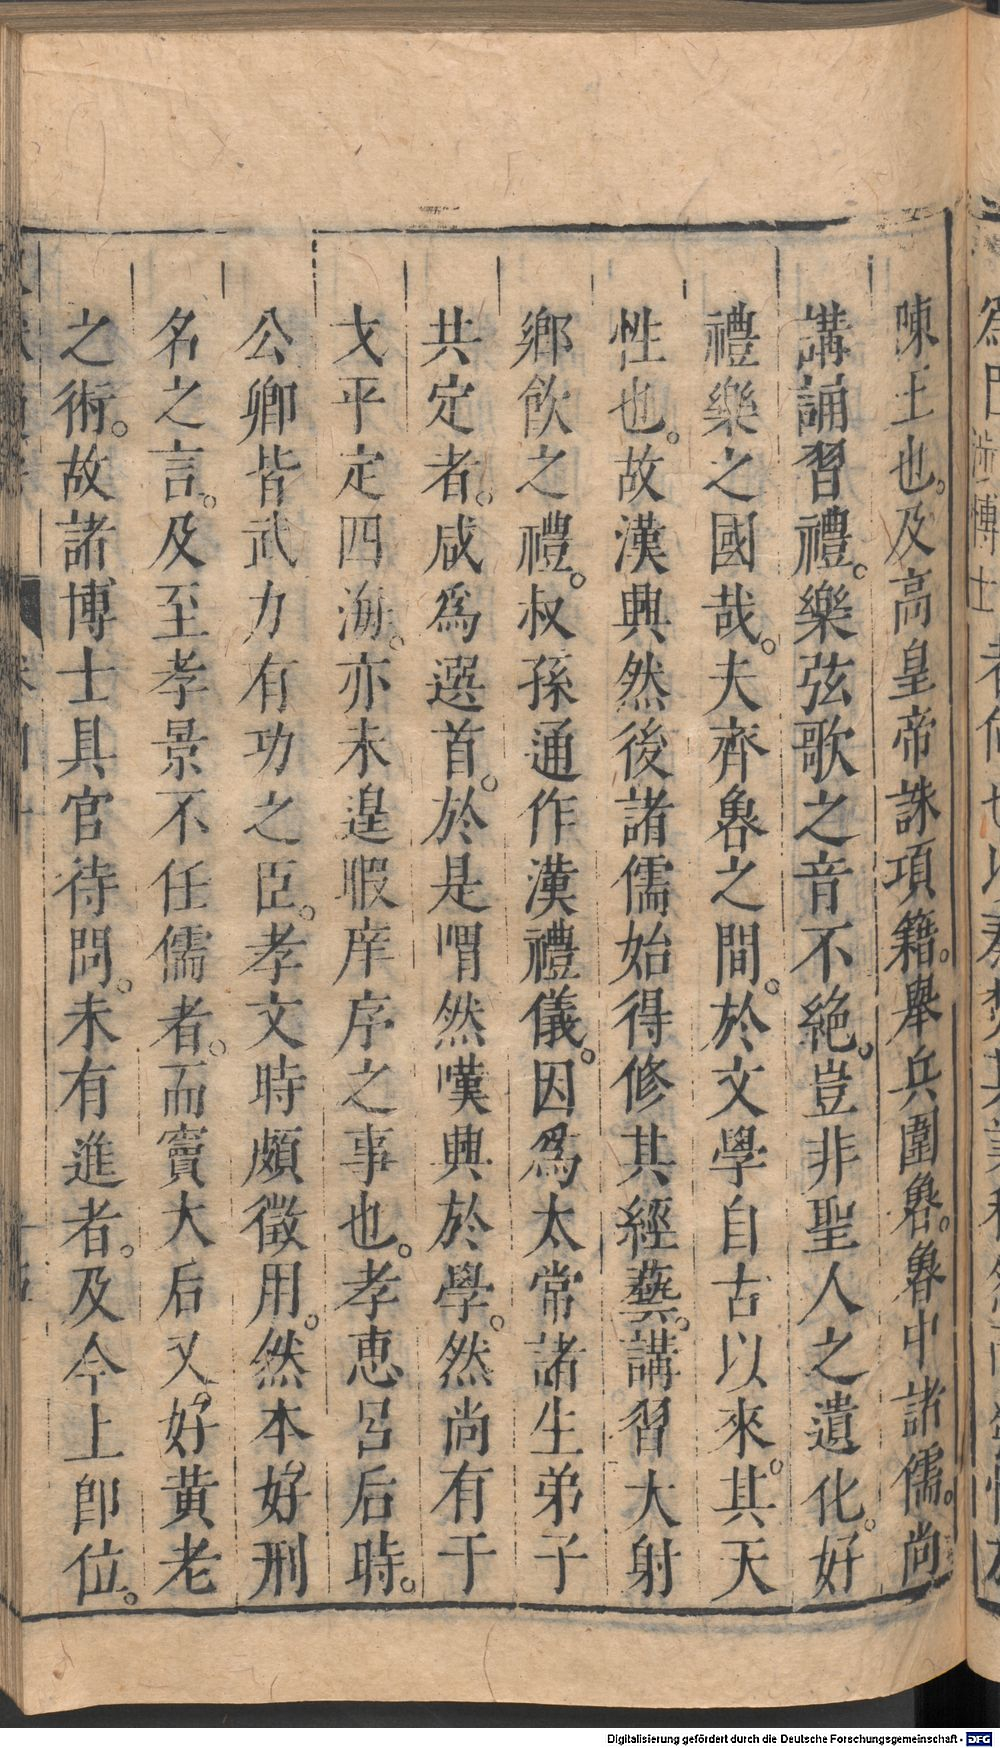 陳王也。及高皇帝誅項籍。舉兵圍魯。魯中諸儒。尚
講誦習禮。樂弦歌之音不絕。豈非聖人之遺化。好
禮樂之國哉。夫齊魯之間。於文學自古以來。其天
性也。故漢興然後諸儒始得修其經藝。講習大射
鄉飲之禮。叔孫通作漢禮儀。因爲太常諸生弟子
共定者。咸爲選首。於是喟然嘆興於學。然尚有于
戈平定四海。亦未遑暇庠序之事也。孝惠呂后時。
公卿皆武力有功之臣。孝文時頗徵用。然本好刑
名之言。及至孝景不任儒者。而竇大后又好黃老
之術。故諸博士具官待問。未有進者。及今上卽位。
Digitalisierung gefördert durch die Deutsche Forschungsgemeinschaft - DFG